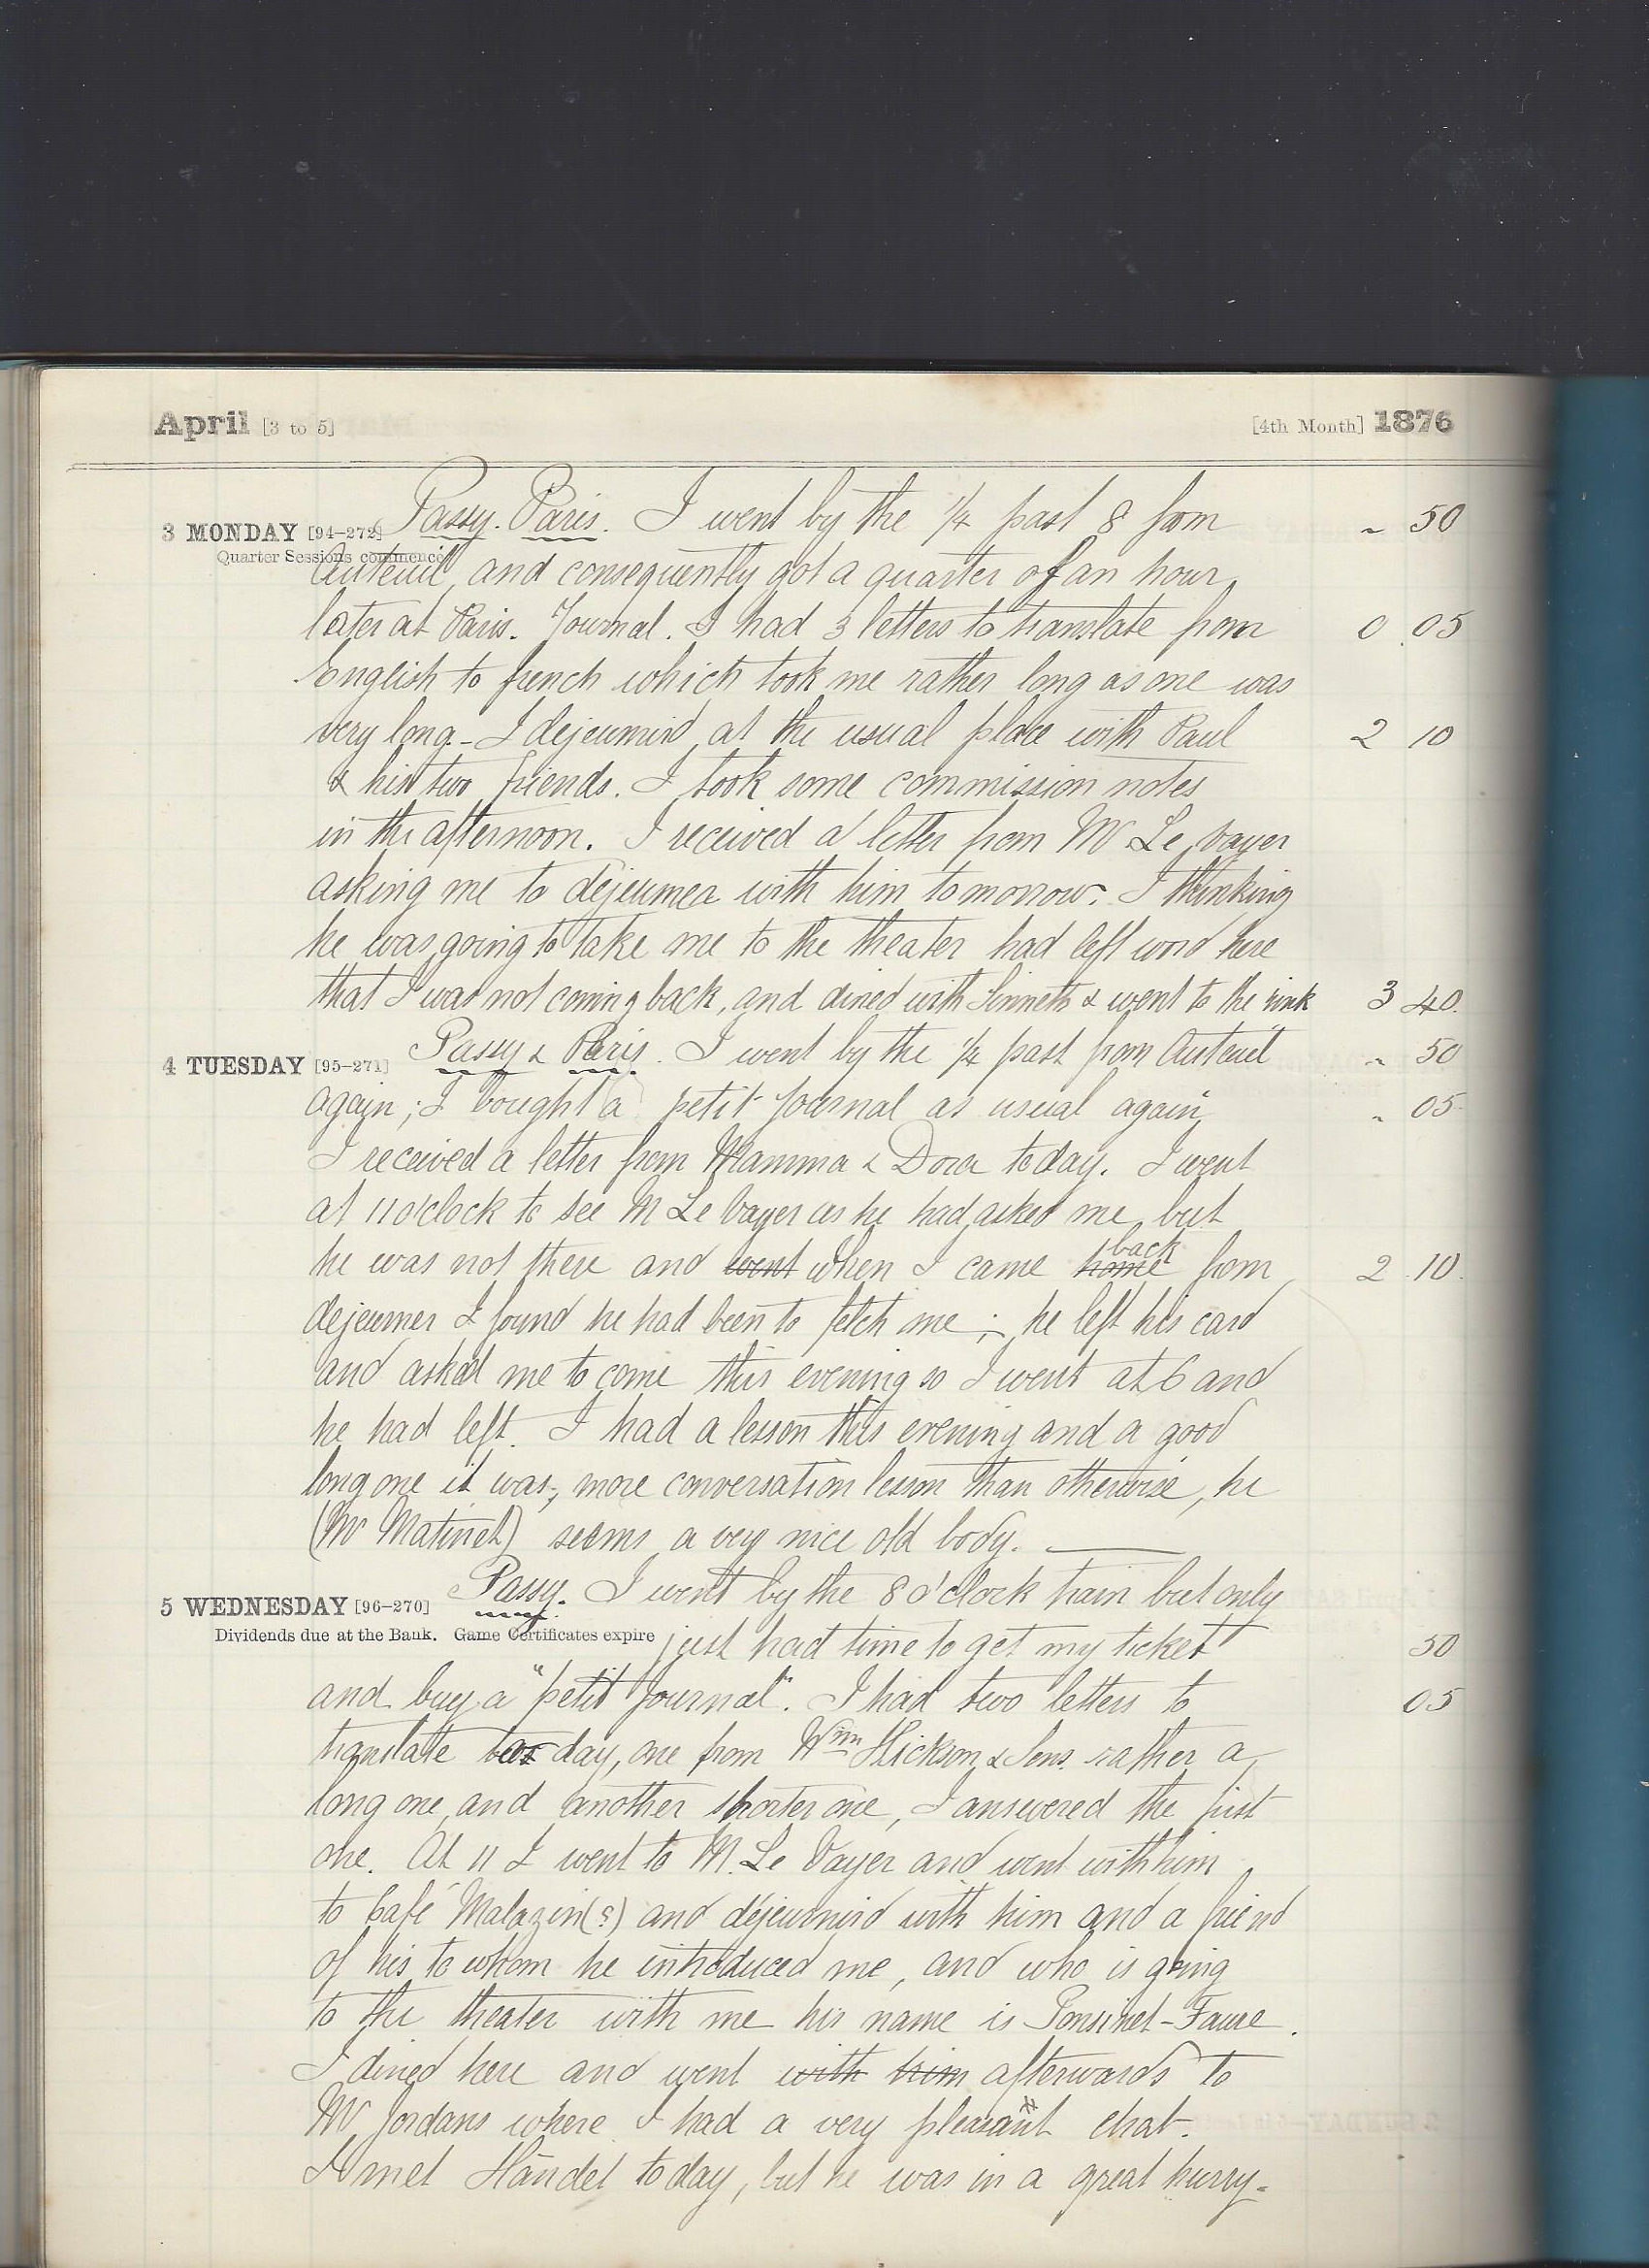 April [3 to 5] [4th Month] 1876
3 MONDAY [94-272] Passy. Paris. I went by the 1/4 past 8 from " 50
Quarter Sessions commence
Auteuil, and consequently got a quarter of an hour
later at Paris. Journal. I had 3 letters to translate from 0 05
English to french which took me rather long as one was
very long - I dejeunird at the usual place with Paul 2 10
& his two friends. I took some commission notes
in the afternoon. I received a letter from Mr Le Vayer
asking me to déjeuner with him tomorrow. I thinking
he was going to take me to the theater had left word here
that I was not coming back, and dined with Sinneth & went to the rink 3 40.
4 TUESDAY [95-271] Passy & Paris. I went by the 1/4 past from Auteuil " 50
again; I bought a petit journal as usual again " 05
I received a letter from Mamma & Dora today. I went
at 11 o'clock to see M Le Vayer as he had asked me but
he was not there and went when I came home back from 2 10.
dejeuner I found he had been to fetch me; he left his card
and asked me to come this evening so I went at 6 and
he had left. I had a lesson this evening and a good
long one it was; more conversation lesson than otherwise, he
(Mr Matinet) seems a very nice old body.
5 WEDNESDAY [96-270] Passy. I went by the 8 o'clock train but only
Dividends due at the Bank. Game Certificates expire just had time to get my ticket 50
and buy a "petit journal". I had two letters to 05
translate to day, one from Wm Hickson & Sons rather a
long one, and another shorter one, I answered the first
one. At 11 I went to M. Le Vayer and went with him
to Café Malazin(s) and déjeunird with him and a friend
of his to whom he introduced me, and who is going
to the theater with me his name is Ponsinet-Faure.
I dined here and went with him afterwards to
Mr Jordans where I had a very pleasant chat.
I met Händel today, but he was in a great hurry-